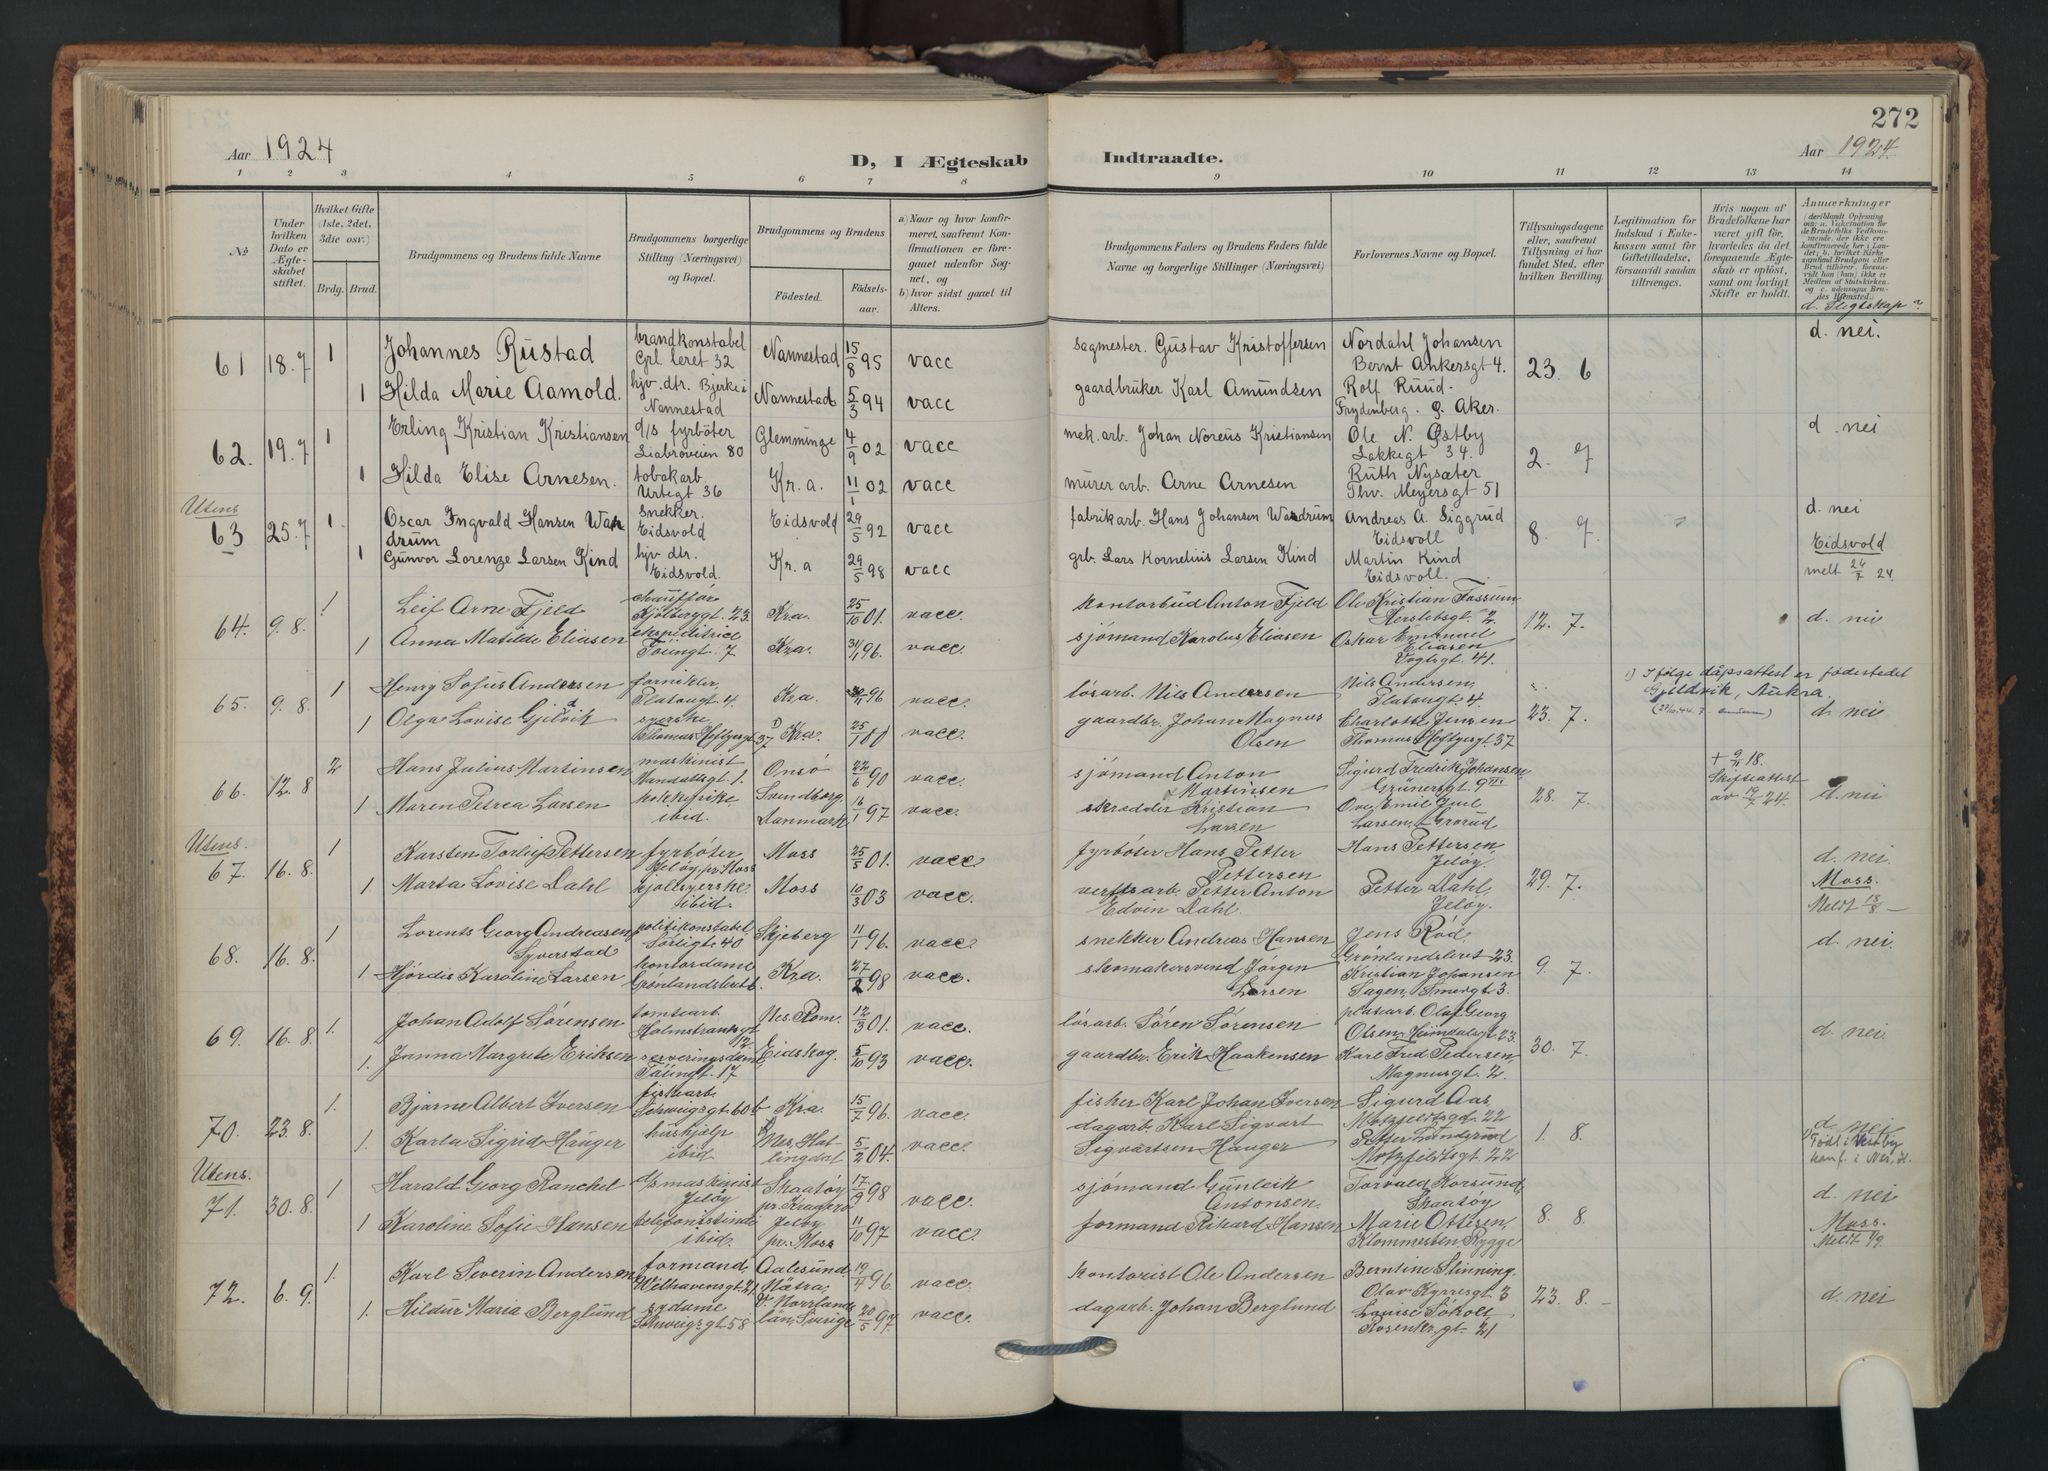 272
Aar 1924
D, I Ægteskab Indtraadte.
Aar 1924.
1 2 3 4 5 6 7 8 9 10 11 12 13 14
No
Under hvilken Dato er Ægteskabet stiftet.
Hvilket Gifte (1ste, 2det, 3die osv.)
Brdg. Brud.
Brudgommens og Brudens fulde Navne
Brudgommens borgerlige Stilling (Næringsvei) og Bopæl.
Brudgommens og Brudens
Födested. Födselsaar.
a) Naar og hvor konfirmeret, saafremt Konfirmationen er foregaaet udenfor Sognet, og
b) hvor sidst gaaet til Alters.
Brudgommens Faders og Brudens Faders fulde Navne og borgerlige Stillinger (Næringsvei)
Forlovernes Navne og Bopæl.
Tillysningsdagene eller, saafremt Tillysning ei har fundet Sted, efter hvilken Bevilling.
Legitimation for Indskud i Enkekassen samt for Giftetilladelse, forsaavidt saadan tiltrænges.
Hvis nogen af Brudefolkene har været gift för, hvorledes da det foregaaende Ægteskab er oplöst, samt om lovligt Skifte er holdt.
Anmærkninger
(deriblandt Oplysning om: a. Vaccination for de Brudefolks Vedkommende, der ikke ere konfirmerede her i Landet; b. hvilket Kirkesamfund Brudgom eller Brud tilhörer, forsaavidt han (hun) ikke er Medlem af Statskirken og c. udensogns Brudes Hjemsted.)
d. Slegtskap?
61 18.7 1 Johannes Rustad brandkonstabel Grl. leret 32 Nannestad 15/8 95 vacc sagmester. Gustav Kristoffersen Nordahl Johansen Bernt Ankersgt 4. 23. 6 d. nei.
1 Hilda Marie Aamold. hjv. dtr. Bjerke i Nannestad Nannestad 5/3 94 vacc gaardbruker Karl Amundsen Rolf Ruud. Frydenberg. Ø. Aker.
62. 19.7 1 Erling Kristian Kristiansen d/s fyrböter Liabroveien 80 Glemminge 4/9 02 vacc mek. arb. Johan Noreus Kristiansen Ole N. Østby Lakkegt 34. 2. 7 d. nei
1 Hilda Elise Arnesen. tobakarb. Urtegt 36 Kr. a. 11/1 02 vacc murer arb. Arne Arnesen Ruth Nysæter Thv. Meyersgt 51
Utens
63 25.7 1 Oscar Ingvald Hansen Wandrum snekker. Eidsvold Eidsvold 29/5 92 vacc fabrikarb. Hans Johansen Wandrum Andreas A. Siggrud Eidsvoll 8. 7. d. nei
1 Gunvor Lorenze Larsen Kind hjv dtr. Eidsvold. Kr. a 29/5 98 vacc grb. Lars Kornelius Larsen Kind Martin Kind Eidsvoll. Eidsvold melt 24/7 24
64. 9.8. 1 Leif Arne Fjeld chauffør Kjölberggt. 23 Kra. 25/10 01. vacc. kontorbud Anton Fjeld Ole Kristian Fossum, Herslebsgt. 2 12. 7. d. nei
1 Anna Matilde Eliasen Töiengt. 7 Kra. 31/1 96. vacc. sjömand Karolus Eliasen Oskar Emanuel Eliasen Vogtsgt. 41.
65. 9.8. 1 Henry Sofus Andersen fornikler, Platougt. 4 Kra. 96 vacc. lösarb. Nils Andersen Nils Andersen, Platougt. 4 23. 7. 1) Ifølge dåpsattest er fødestedet Gjeldvik, Aukra.
1 Olga Lovise Gjelvik syerske Thomas Heftyesgt 37 Kra. 25/1 00 vacc. gaardbr. Johan Magnus Olsen Charlotte Jensen Thomas Heftyesgt. 37 d. nei
66. 12.8 2 Hans Julius Martinsen maskinist Mandalsgt. 1. Onsö 22/6 90 vacc. sjömand Anton Martinsen Sigurd Fredrik Johansen Grünersgt. 9 III 28. 7. + 9/11 18. Skifteattest av 19/7 24. d. nei
1 Maren Petrea Larsen kokkepike ibid. Svendborg, Danmark 16/1 97 vacc. skrædder Kristian Larsen Ove Emil Juel Larsen, Grorud
Utens.
67. 16.8. 1 Karsten Torleif Pettersen fyrböter Jelöy pr. Moss Moss 25/5 01. vacc. fyrböter Hans Petter Pettersen Hans Pettersen, Jelöy. 29. 7. d. nei.
1 Marta Lovise Dahl kjolesyerske, ibid. Moss 10/3 03 vacc. verftsarb. Petter Anton Edvin Dahl. Petter Dahl, Jelöy. Moss. Meldt 18/8
68. 16.8. 1 Lorents Georg Andreasen Syverstad politikonstabel Sörligt. 40 Skjeberg 11/1 96. vacc. snekker Andreas Hansen Jens Röd, Grönlandsleret 23. 9. 7. d. nei.
1 Hjördis Karoline Larsen kontordame Grönlandsleret Kra. 27/2 98 vacc. skomakersvend Jörgen Larsen Kristian Johansen Sagen, Smergt. 3.
69. 16.8. 1. Johan Adolf Sörensen tomtearb. Holmstransgt. 1/2 Nes. Rom. 12/3 01. vacc. lösarb. Sören Sörensen platearb. Olaf Georg Olsen, Heimdalsgt. 23. 30. 7. d. nei.
1. Janna Margrete Eriksen serveringsdame Töiengt. 17 Eidskog. 5/10 93 vacc. gaardbr. Erik Haakensen Karl Fred Pedersen, Magnusgt. 2.
70. 23.8. 1. Bjarne Albert Iversen fiskearb. Schweigsgt. 60 b Kra. 15/7 96. vacc. fisker Karl Johan Iversen Sigurd Aas, Motzfeldtsgt. 22 1. 8. d. nei
1. Karla Sigrid Hauger hushjælp ibid Nes, Hallingdal 5/2 04. vacc. dagarb. Karl Sigvart Sigvartsen Hauger Petter Lundgrud Motzfeldtsgt. 22 Födt i Vestby konf. i Nes, H.
Utens.
71. 30.8. 1 Harald Georg Ranchel d/s maskinist Jelöy Skaatöy pr. Kragerö 17/9 98 vacc. sjömand Gunleik Antonsen, Torvald Korsund, Skaatöy 8. 8. d. nei
1 Karoline Sofie Hansen telefonistinde ibid. Jelöy pr. Moss 11/10 97 vacc. formand Rikard Hansen Marie Ottesen, Klommesten Rygge Moss. Meldt 1/9.
72. 6.9. 1. Karl Severin Andersen formand, Welhavensgt. 21 Aalesund. 19/4 96 vacc. kontorist Ole Andersen Berntine Slinning, Olav Kyrresgt. 3 23. 8. d. nei
1. Hildur Maria Berglund sydame Schweigsgt. 58 Nätra, V. Norrlands län, Sverige 20/5 97. vacc. dagarb. Johan Berglund Louise Sökolt, Rosenkr. gt. 21